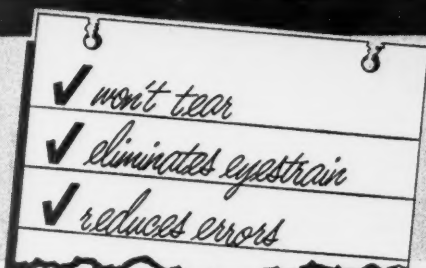 ✓ won't tear
✓ eliminates eyestrain
✓ reduces errors